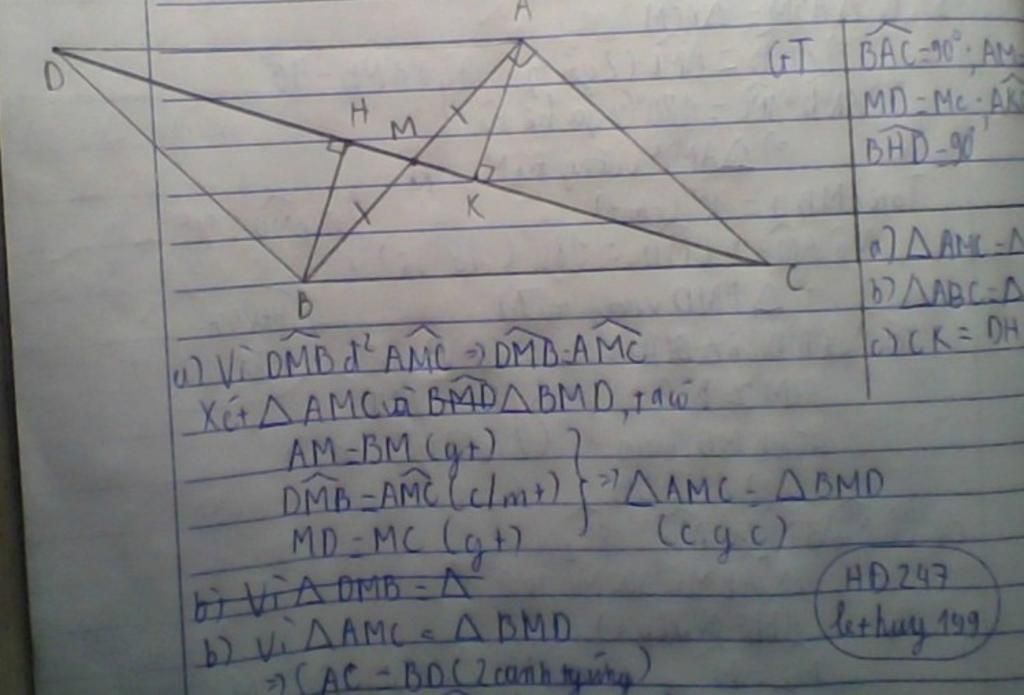 A
D
H
M
K
B
C
GT
BAC=90°; AM=
MD=MC; AK
BHD=90°
a) △AMC=△
b) △ABC=△
c) CK=DH
a) Vì DMB đ² AMC => DMB=AMC
Xét △AMC và BMD △BMD, ta có:
AM=BM (gt)
DMB=AMC (c/mt)
MD=MC (gt)
=> △AMC=△BMD
(c.g.c)
b) Vì △DMB=△
b) Vì △AMC=△BMD
=> AC=BD (2 cạnh tg ứng)
HD247
lethuy199